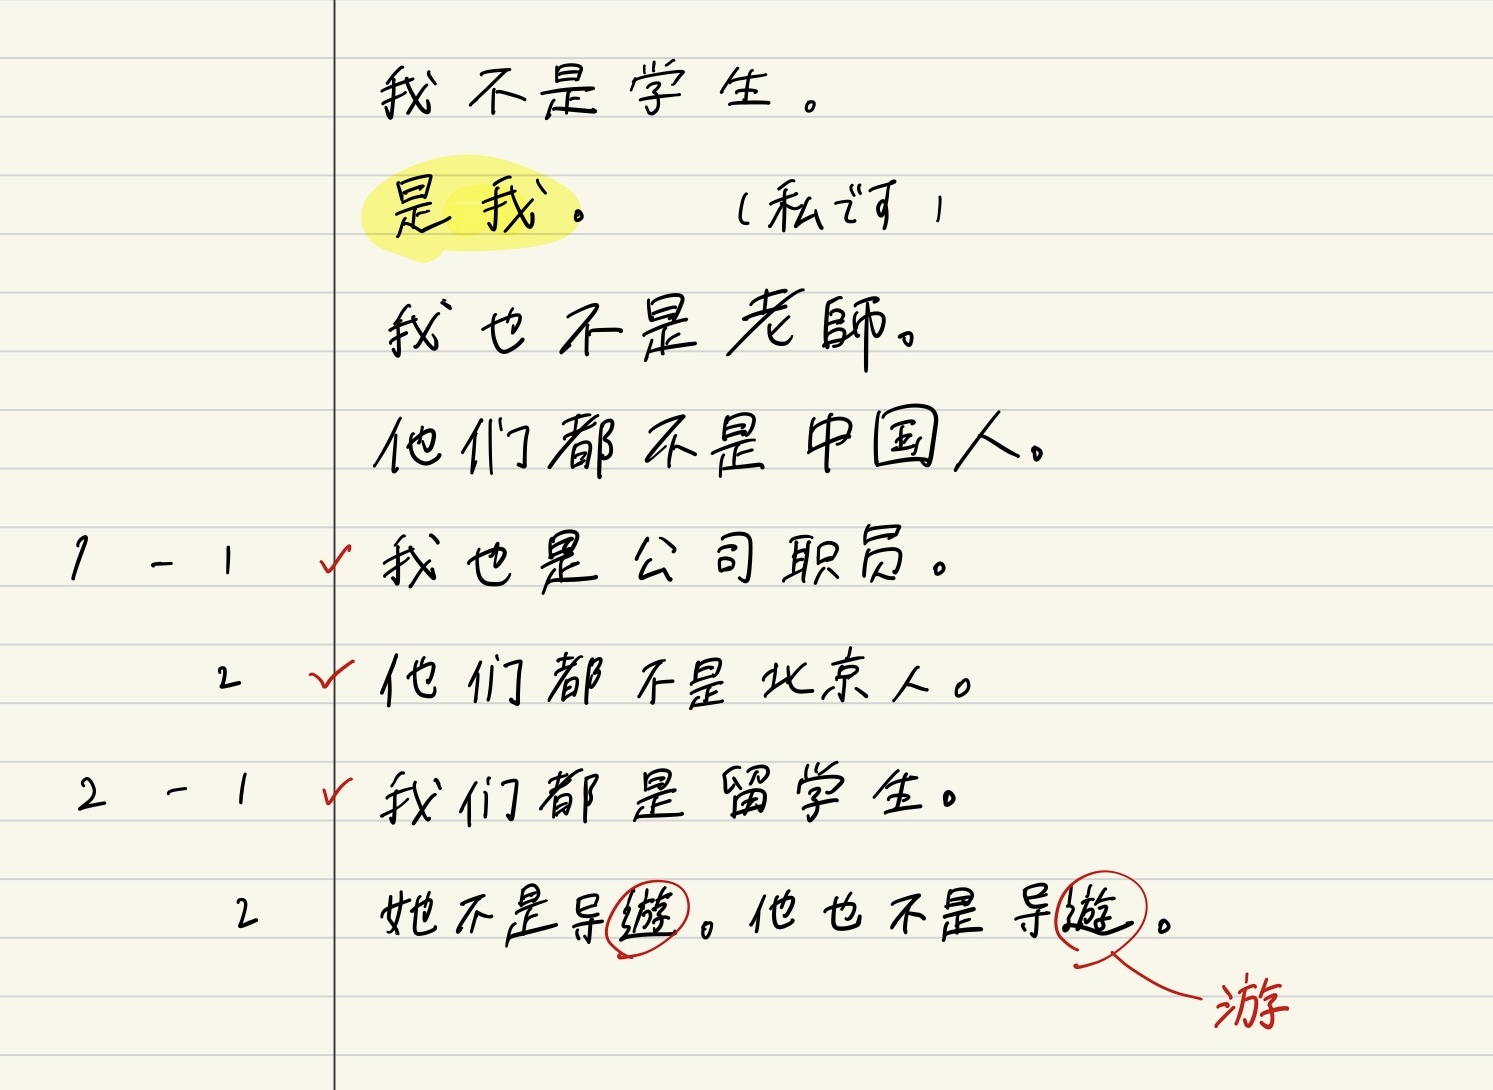 我不是学生。
是我。 (私です)
我也不是老師。
他们都不是中国人。
1 - 1 ✓ 我也是公司职员。
2 ✓ 他们都不是北京人。
2 - 1 ✓ 我们都是留学生。
2 她不是导遊。他也不是导遊。
游